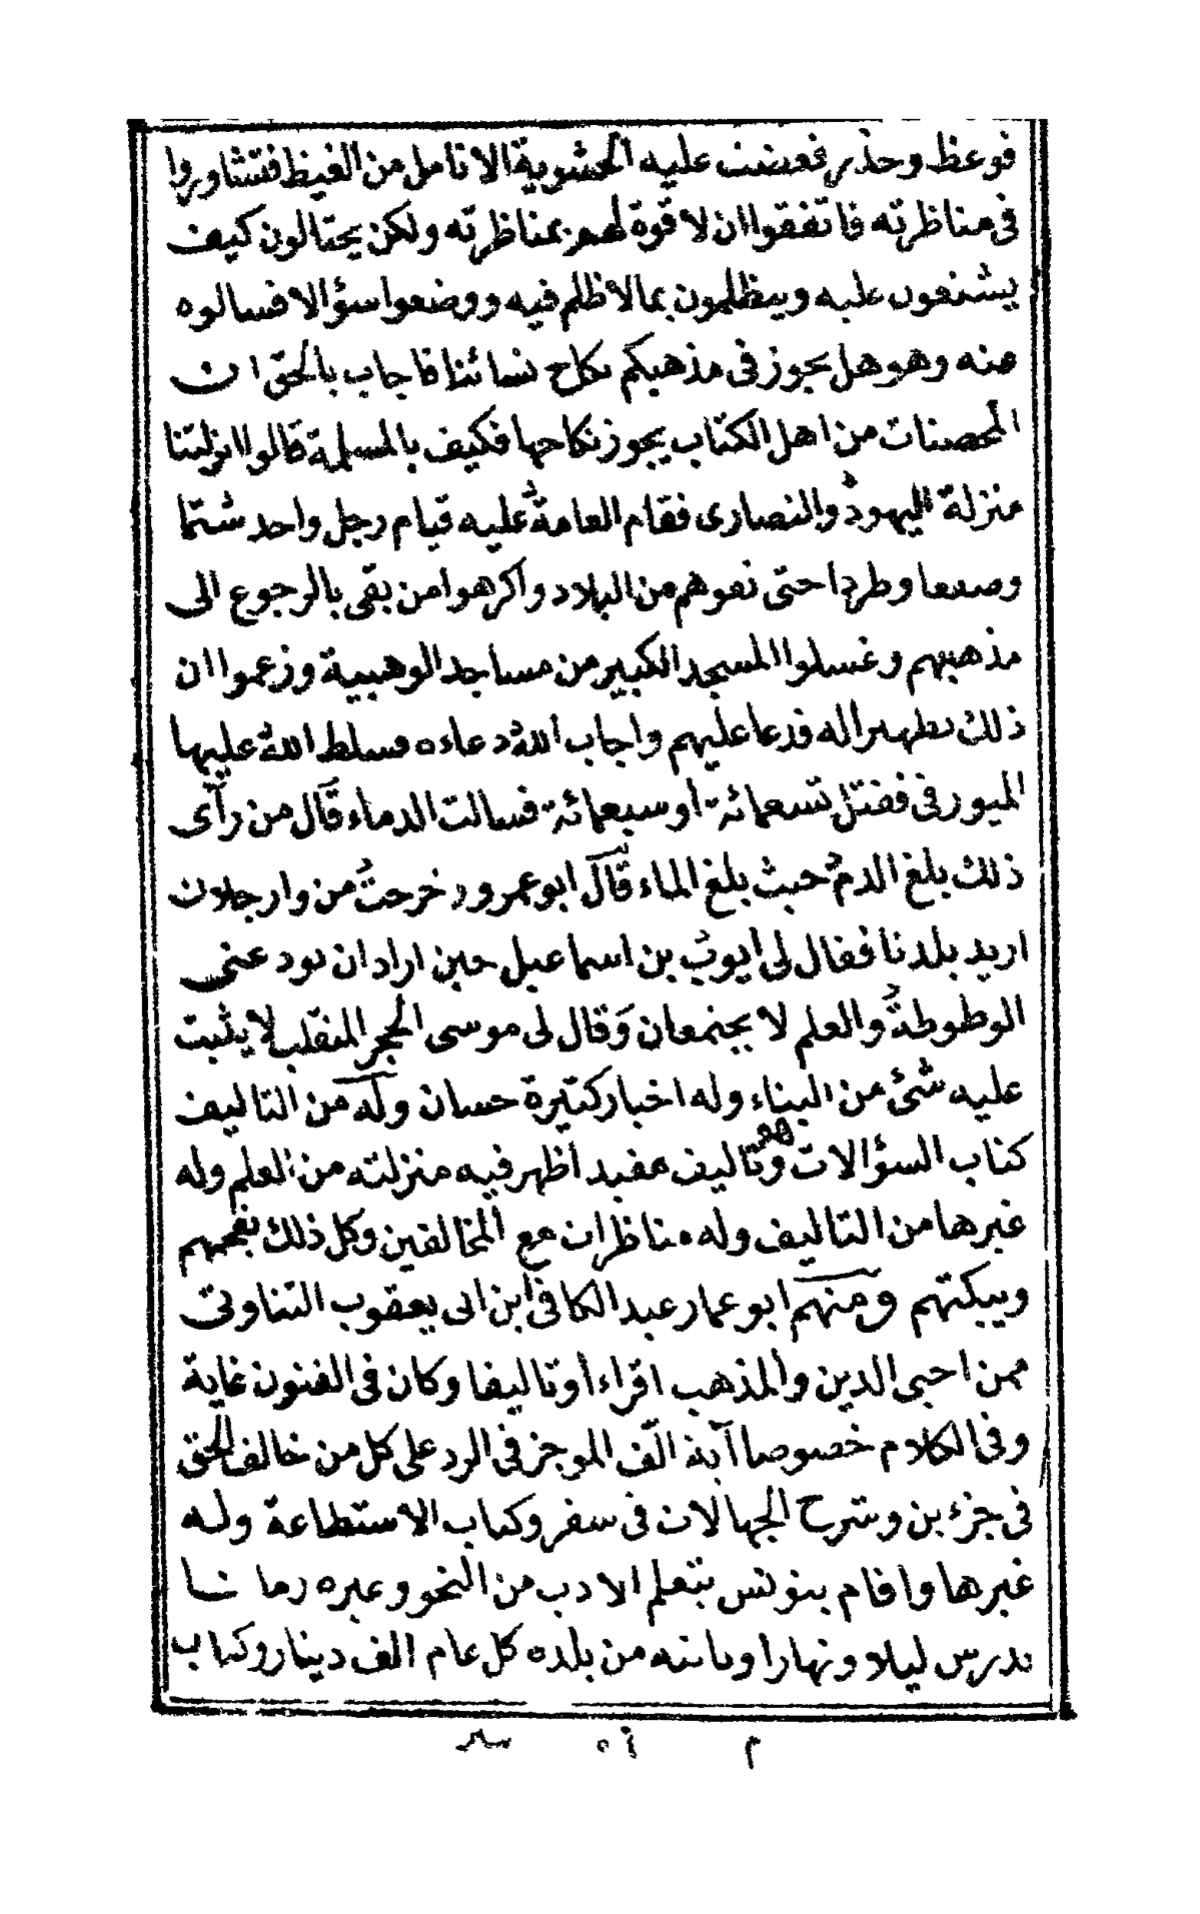 فوعظ وحذر فعضت عليه الحشوية الانامل من الغيظ فتشاوروا
فى مناظرته فاتفقوا ان لا قوة لهم بمناظرته ولكن يحتالون كيف
يشنعون عليه ويظلمون بما لا ظلم فيه ووضعوا سؤالا فسالوه
عنه وهو هل يجوز فى مذهبكم نكاح نسائنا فاجاب بالحق ان
المحصنات من اهل الكتاب يجوز نكاحها فكيف بالمسلمة قالوا انزلتنا
منزلة اليهود والنصارى فقام العامة عليه قيام رجل واحد شتما
وصفعا وطردا حتى نفوهم من البلاد واكرهوا من بقى بالرجوع الى
مذهبهم وغسلوا المسجد الكبير من مساجد الوهبية وزعموا ان
ذلك تطهيرا له فدعا عليهم واجاب الله دعاءه فسلط الله عليها
الميورقى فقتل تسعمائة او سبعمائة فسالت الدماء قال من رآى
ذلك بلغ الدم حيث بلغ الماء قال ابو عمرو خرجت من وارجلان
اريد بلدنا فقال لى ايوب بن اسماعيل حين اراد ان يودعنى
الوطوطة والعلم لا يجتمعان وقال لى موسى الحجر المنقلب لا يثبت
عليه شئ من البناء وله اخبار كثيرة حسان وله من التاليف
كتاب السؤالات وهو تاليف مفيد اظهر فيه منزلته من العلم وله
غيرها من التاليف وله مناظران مع المخالفين وكل ذلك يفحمهم
ويبكتهم ومنهم ابو عمار عبد الكافى ابن ابى يعقوب التناوتى
ممن احيى الدين والمذهب اقراءا وتاليفا وكان فى الفنون غاية
وفى الكلام خصوصا آية الف الموجز فى الرد على كل من خالف الحق
فى جزءين وشرح الجهالات فى سفر وكتاب الاستطاعة وله
غيرها واقام بتونس يتعلم الادب من النحو وغيره زمانا
يدرس ليلا ونهارا وياتيه من بلده كل عام الف دينار وكتاب
م ٥٦ سير